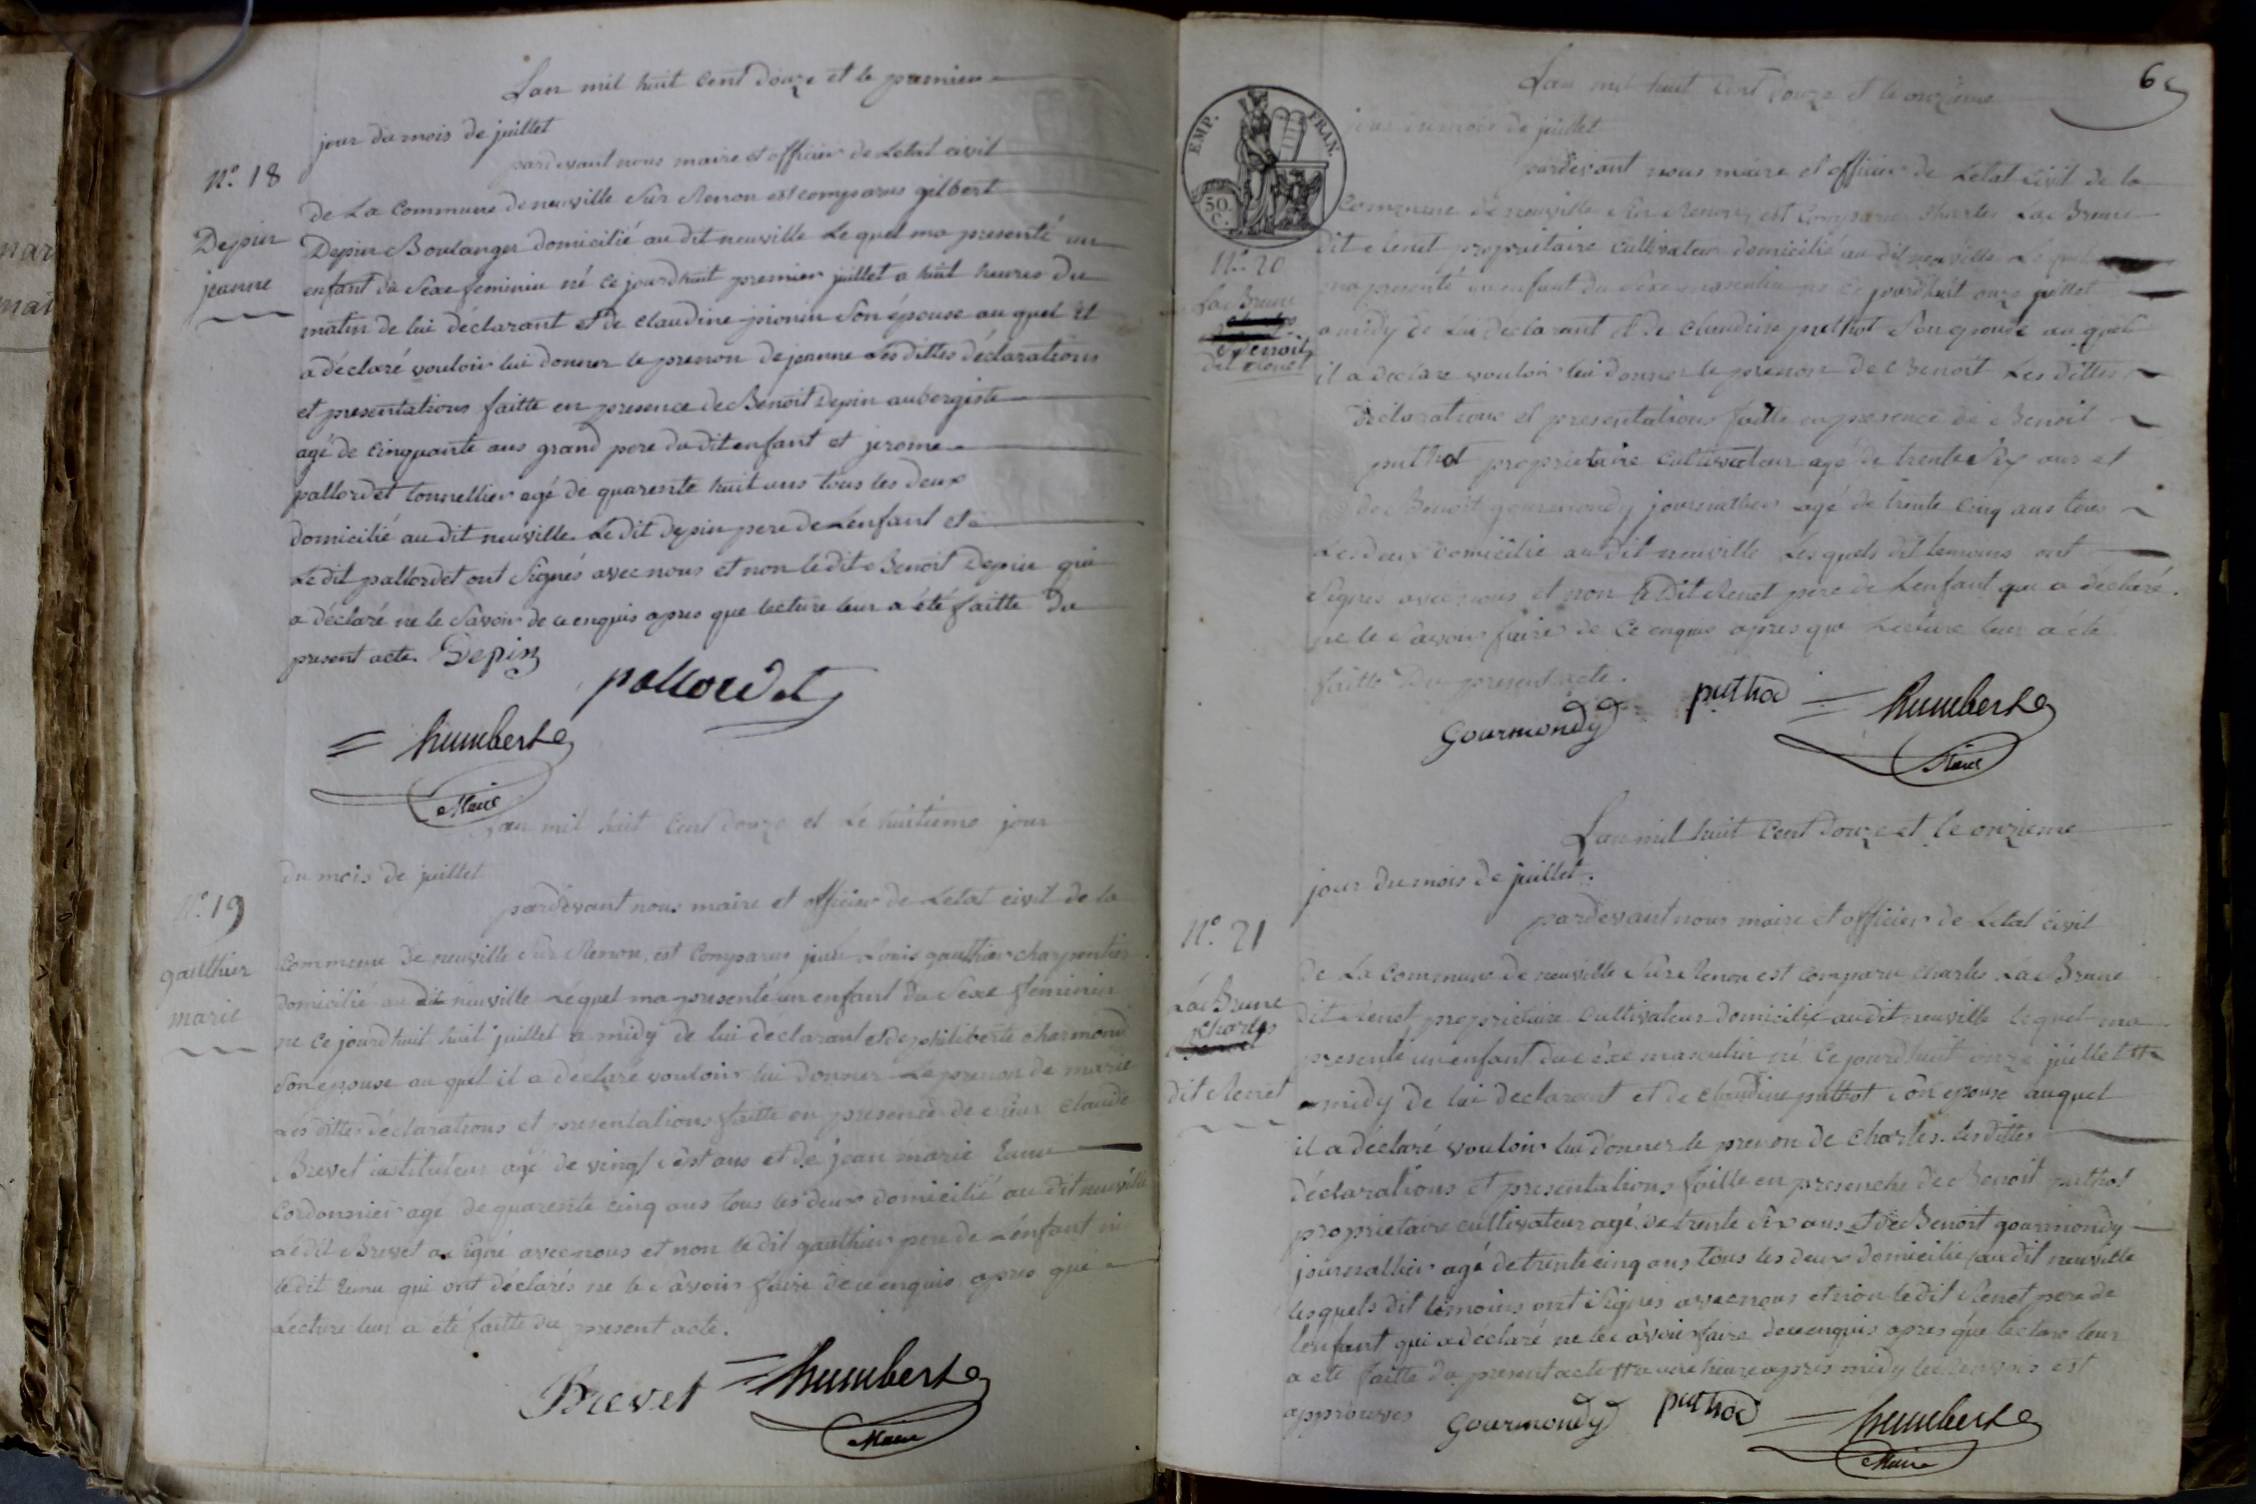 Lan mil huit Cent douze et le premier
jour du mois de juillet
pardevant nous maire et officier de Letat civil
N.º 18
de La Commune de neuville Sur Renon est comparus gilbert
Depin
jeanne
Depin Boulanger domicilié au dit neuville Le quel ma presenté un
enfant du Sexe feminin né Ce jourdhuit premier juillet a huit heures du
matin de lui déclarant et de Claudine pionin Son épouse au quel il
a déclaré vouloir lui donner le prenon de jeanne Les dittes déclarations
et presentations faitte en presence de Benoit Depin aubergiste
agé de Cinquante ans grand pere du dit enfant et jerome
pallordet tonnellier agé de quarente huit ans tous les deux
domicilié au dit neuville. Le dit depin pere de Lenfant et
Le dit pallordet ont Signés avec nous et non le dit Benoit Depin qui
a déclaré ne le Savoir de ce enquis apres que lecture leur a été faitte du
present acte. Depin
pallordet
humbert
Maire
Lan mil huit Cent douze et Le huitieme jour
du mois de juillet
N.º 19
gauthier
marie
pardevant nous maire et officier de Letat civil de la
Commune de neuville Sur Renon, est Comparus Louis gauthier charpentier
domicilié au dit neuville Lequel ma presenté un enfant du Sexe feminin
né Ce jourdhuit huit juillet a midy de lui déclarant et de philiberte Charmond
Son epouse au quel il a déclaré vouloir lui donner Le prenon de marie
Les dittes déclarations et presentations faitte en presence de Claude
Brevet instituteur agé de vingt sept ans et de jean marie
Cordonnier agé de quarente cinq ans tous les deux domicilié au dit neuville
Le dit Brevet a Signé avec nous et non le dit gauthier pere de Lenfant ni
le dit qui ont déclarés ne le Savoir faire de ce enquis apres que
Lecture leur a été faitte du present acte.
Brevet humbert
Maire
65
Lan mil huit Cent douze et le onzieme
jour du mois de juillet
EMP. FRAN.
50 C.
pardevant nous maire et officier de Letat Civil de la
Commune de neuville Sur Renon, est Comparus Charles La Brune
dit Renet proprietaire Cultivateur domicilié au dit neuville Le quel
N.º 20
La Brune
Benoit
dit Renet
ma presenté un enfant du Sexe masculin né Ce jourdhuit onze juillet
a midy de Lui declarant et de Claudine puthot Son epouse au quel
il a declaré vouloir lui donner le prenon de Benoit Les dittes
déclarations et presentations faitte en presence de Benoit
puthot proprietaire Cultivateur agé de trente Six ans et
de Benoit gourmondy journallier agé de trente Cinq ans tous
Les deux domicilié au dit neuville Lesquels dit temoins ont
Signés avec nous et non le dit Renet pere de Lenfant qui a déclaré
ne le Savoir faire de Ce enquis apres que Lecture leur a été
faitte du present acte.
Gourmondy puthod humbert
Maire
Lan mil huit Cent douze et le onzieme
jour du mois de juillet.
pardevant nous maire et officier de Letat civil
N.º 21
La Brune
Charles
dit Renet
de La Commune de neuville Sur Renon est comparu Charles La Brune
dit Renet proprietaire Cultivateur domicilié au dit neuville lequel ma
presenté un enfant du Sexe masculin né Ce jourdhuit onze juillet
midy de lui déclarant et de Claudine puthot Son epouse auquel
il a déclaré vouloir lui donner le prenon de Charles. les dittes
déclarations et presentations faitte en presence de Benoit puthot
proprietaire cultivateur agé de trente Six ans et de Benoit gourmondy
journallier agé de trente cinq ans tous les deux domicilié au dit neuville
lesquels dit temoins ont Signés avec nous et non le dit Renet pere de
lenfant qui a déclaré ne le Savoir faire de ce enquis apres que lecture leur
a été faitte du present acte a une heure apres midy le renvois est
approuves Gourmondy puthod humbert
Maire